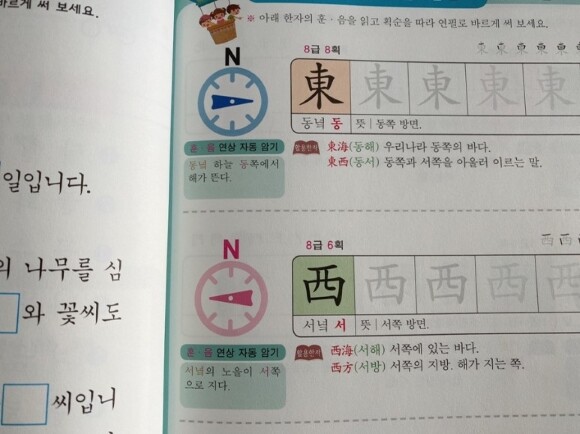 바르게 써 보세요.
일입니다.
의 나무를 심
와 꽃씨도
씨입니
※ 아래 한자의 훈·음을 읽고 획순을 따라 연필로 바르게 써 보세요.
N
8급 8획
東 東 東 東 東
동녘 동 뜻 | 동쪽 방면.
훈·음 연상 자동 암기
동녘 하늘 동쪽에서
해가 뜬다.
활용한자 東海(동해) 우리나라 동쪽의 바다.
東西(동서) 동쪽과 서쪽을 아울러 이르는 말.
N
8급 6획
西 西 西 西 西
서녘 서 뜻 | 서쪽 방면.
훈·음 연상 자동 암기
서녘의 노을이 서쪽
으로 지다.
활용한자 西海(서해) 서쪽에 있는 바다.
西方(서방) 서쪽의 지방. 해가 지는 쪽.